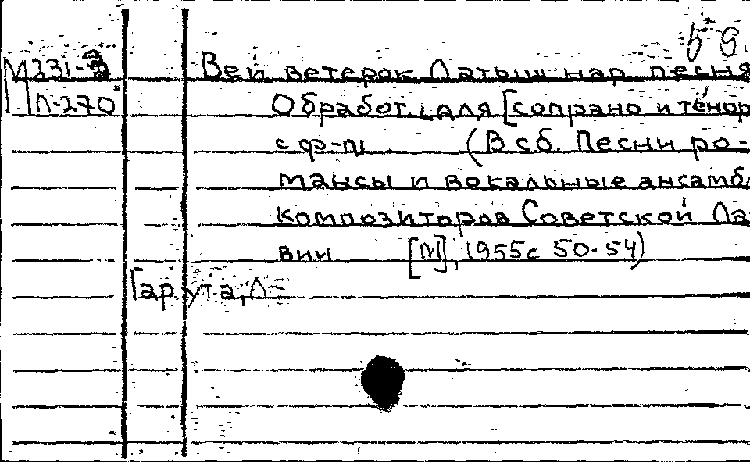 59.
М231-3 Вей ветерок Латыш нар песня
Л-270 Обработ. для [сопрано и тенор
с ф-п. (В сб. Песни ро-
мансы и вокальные ансамбл
композиторов Советской Ла
вии [М], 1955 с 50-54)
Гарута, Л=